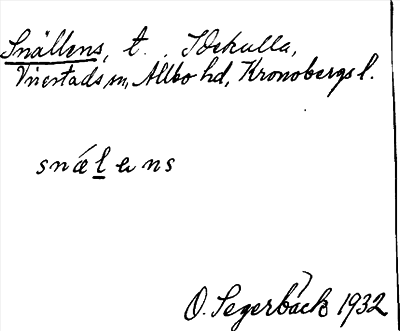 Snällens, t. Idekulla,
Vrestads sn, Allbo hd, Kronobergs l.
snǽlens
O. Segerbäck 1932